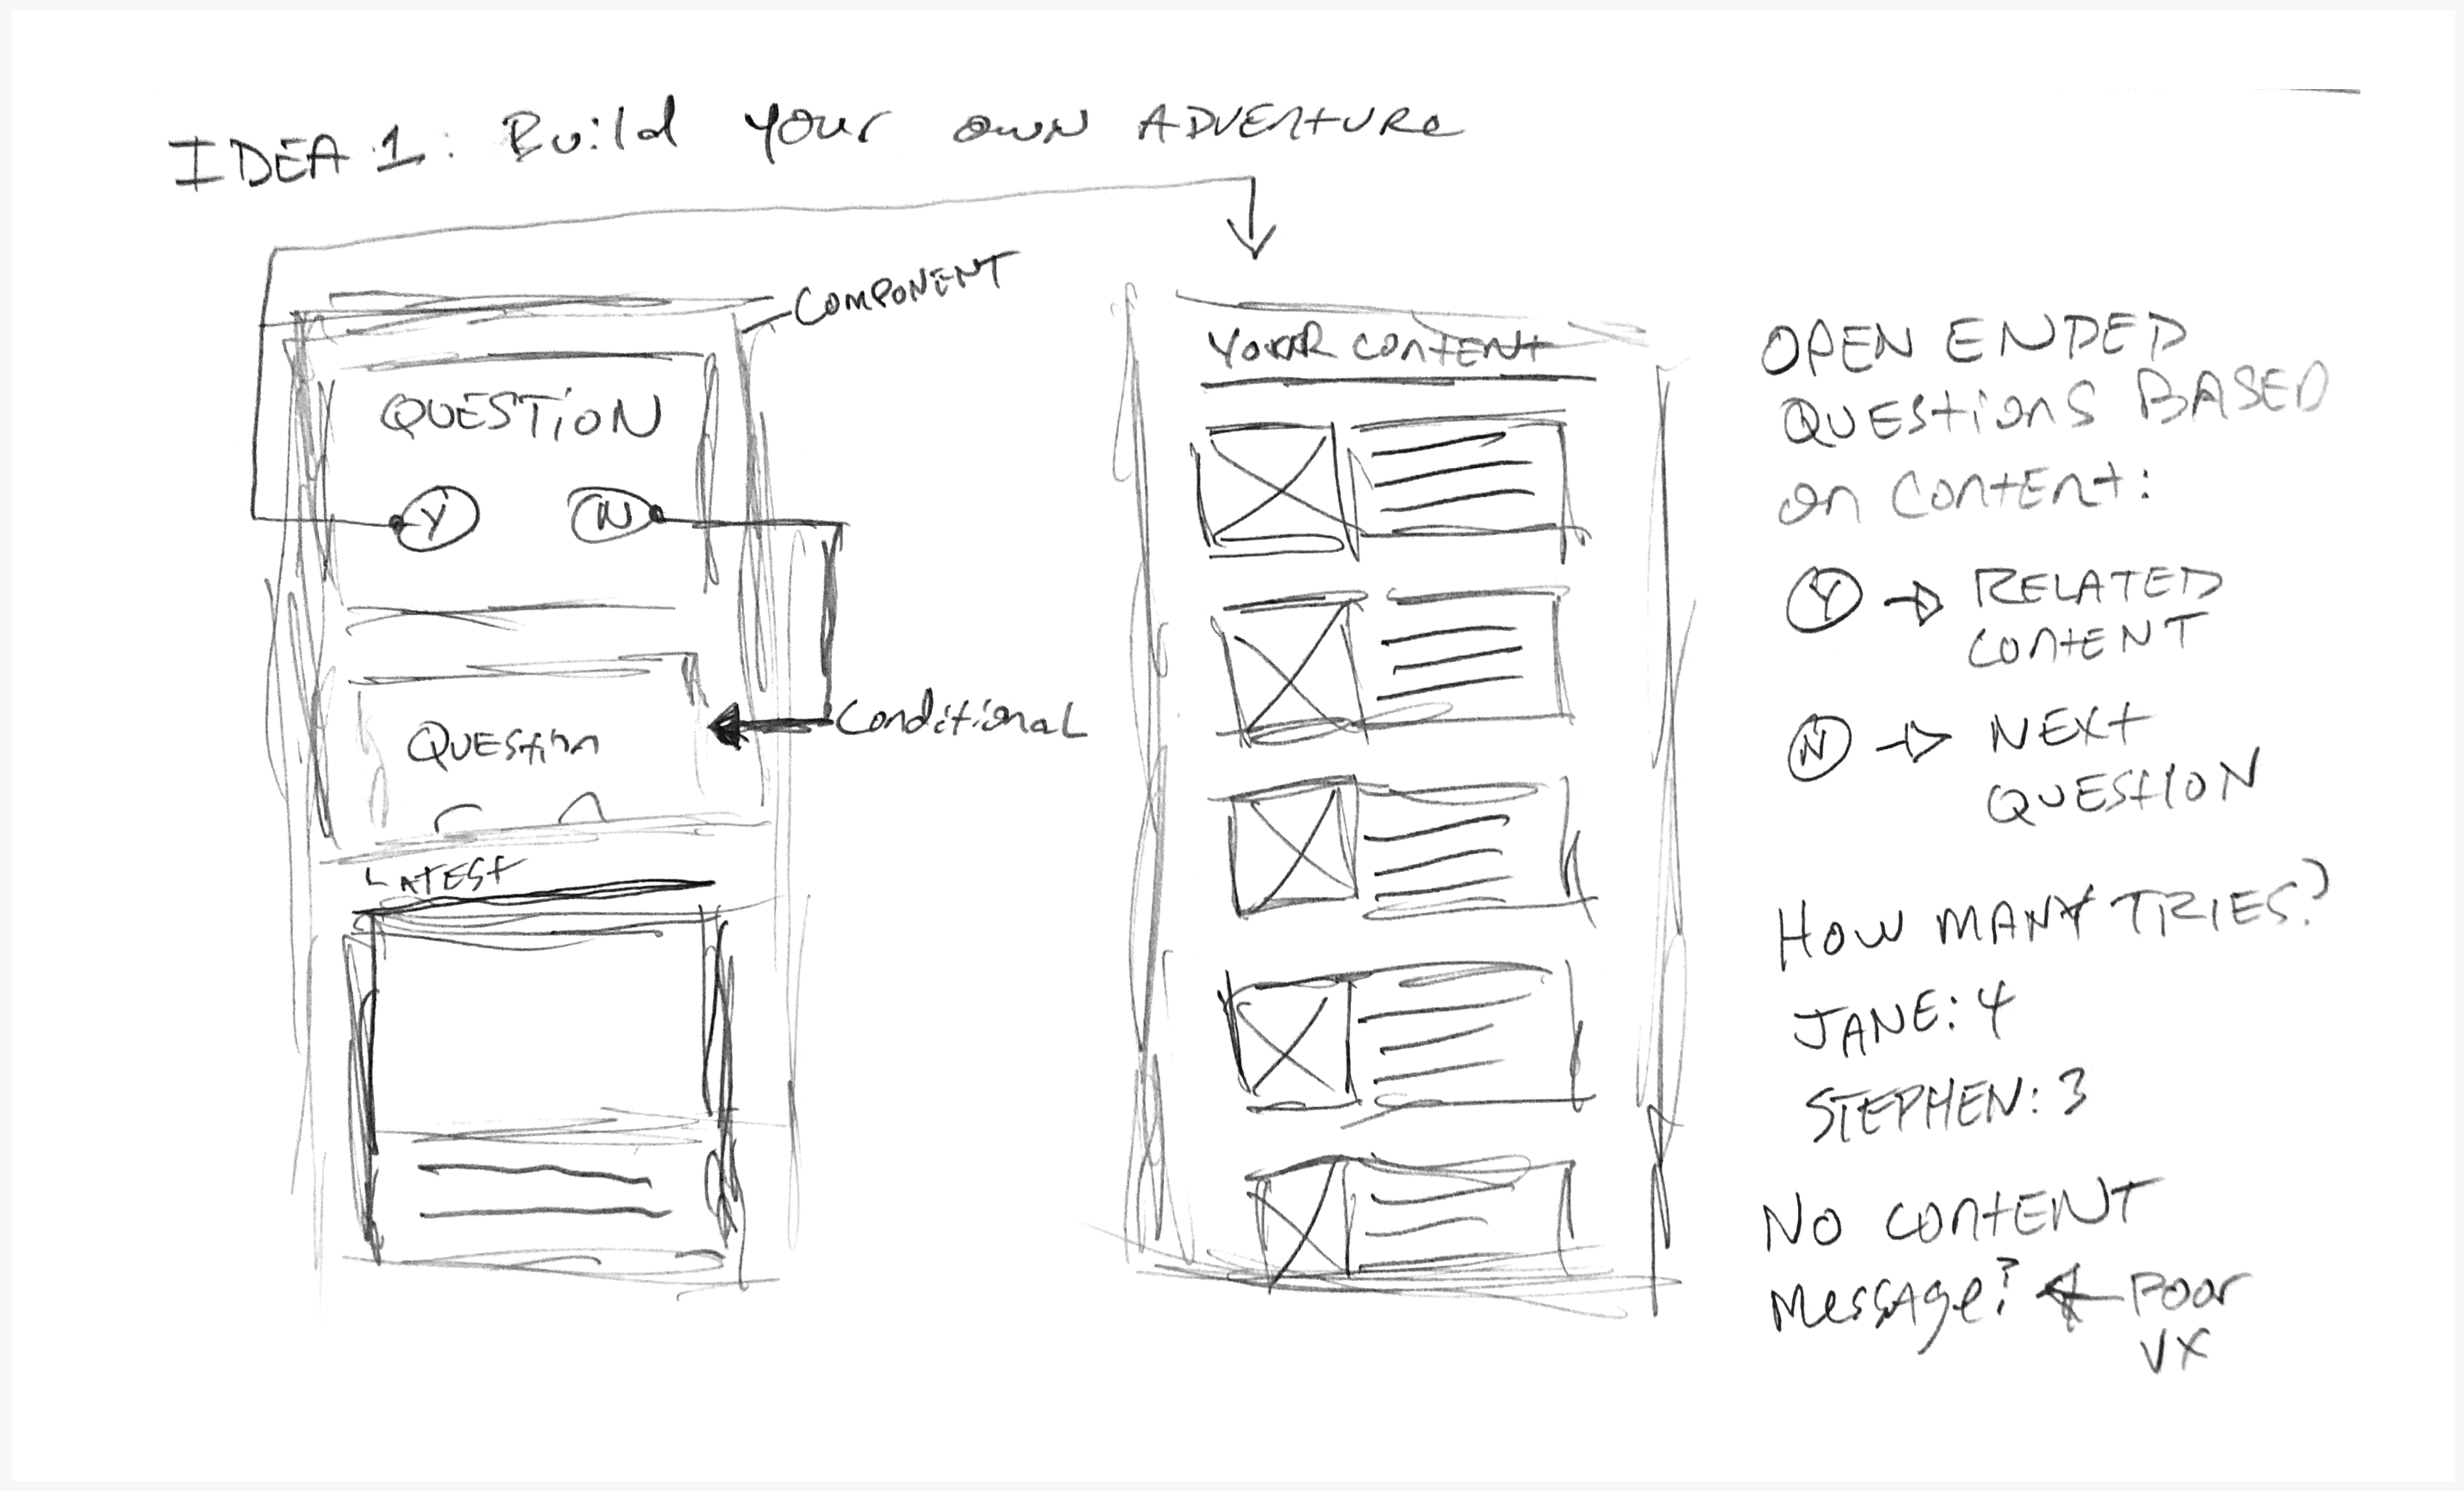 IDEA 1: Build your own ADVENTURE
COMPONENT
QUESTION
Y N
Conditional
Question
LATEST
YOUR CONTENT
OPEN ENDED
QUESTIONS BASED
on Content:
Y → RELATED
CONTENT
N → NEXT
QUESTION
HOW MANY TRIES?
JANE: 4
STEPHEN: 3
NO CONTENT
Message? ← Poor
UX